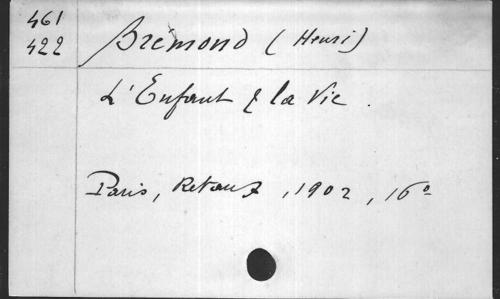 461
422
Brémond (Henri)
L'Enfant & la Vie.
Paris, Retaux, 1902, 16°